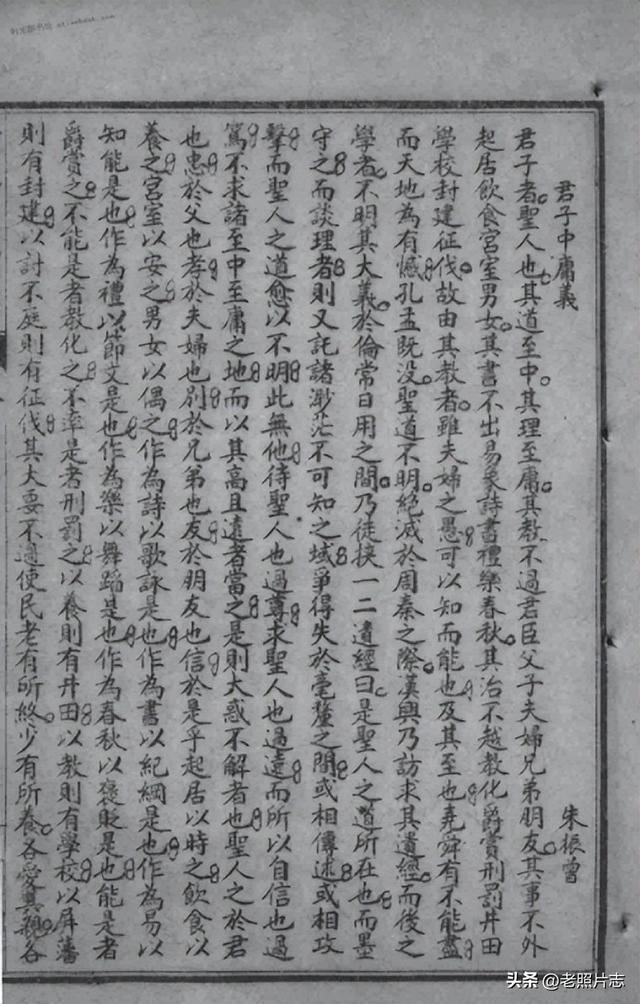 君子中庸義 朱振曾
君子者聖人也其道至中其理至庸其教不過君臣父子夫婦兄弟朋友其事不外
起居飲食宮室男女其書不出易象詩書禮樂春秋其治不越教化爵賞刑罰井田
學校封建征伐故由其教者雖夫婦之愚可以知而能也及其至也堯舜有不能盡
而天地為有憾孔孟既没聖道不明絕滅於周秦之際漢興乃訪求其遺經而後之
學者不明其大義於倫常日用之間乃徒挾一二遺經曰是聖人之道所在也而墨
守之而談理者則又託諸渺茫不可知之域爭得失於毫釐之間或相傳述或相攻
擊而聖人之道愈以不明此無他待聖人也過尊求聖人也過遠而所以自信也過
篤不求諸至中至庸之地而以其高且遠者當之是則大惑不解者也聖人之於君
也忠於父也孝於夫婦也別於兄弟也友於朋友也信於是乎起居以時之飲食以
養之宮室以安之男女以偶之作為詩以歌詠是也作為書以紀綱是也作為易以
知能是也作為禮以節文是也作為樂以舞蹈是也作為春秋以褒貶是也能是者
爵賞之不能是者教化之不率是者刑罰之以養則有井田以教則有學校以屏藩
則有封建以討不庭則有征伐其大要不過使民老有所終少有所養各愛其親各
头条 @老照片志